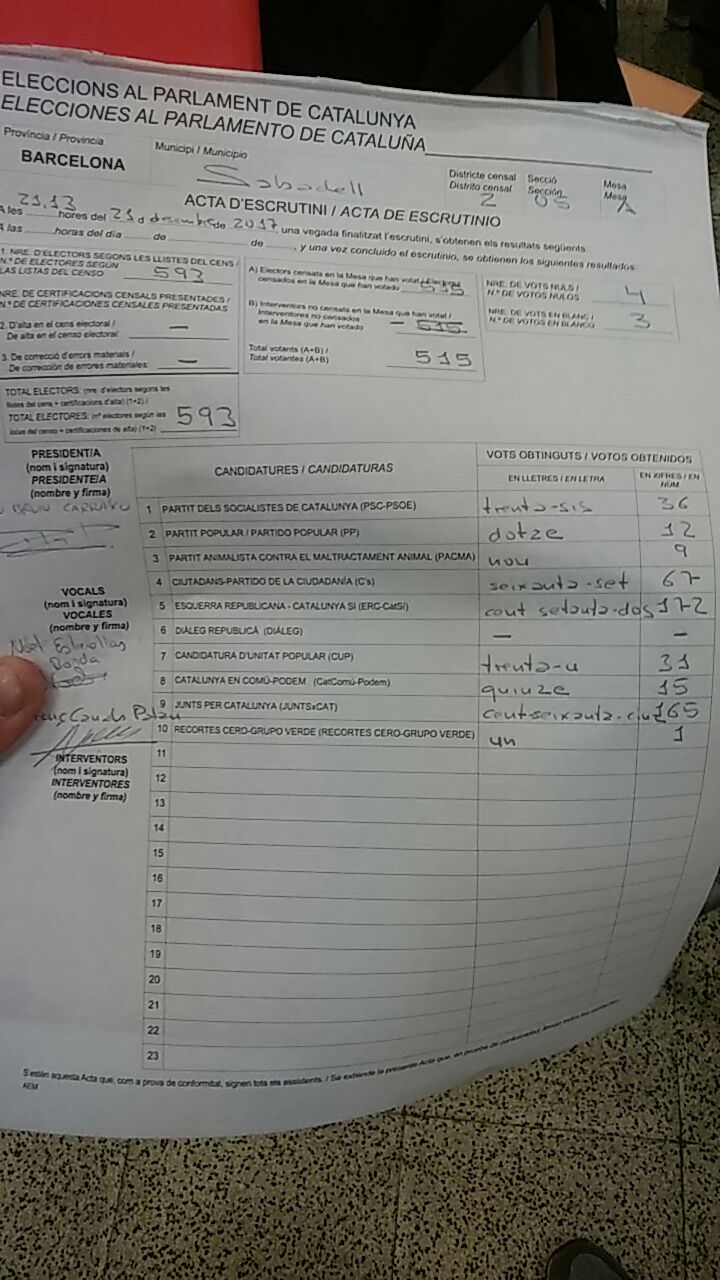 ELECCIONS AL PARLAMENT DE CATALUNYA
ELECCIONES AL PARLAMENTO DE CATALUÑA
Província / Provincia
BARCELONA
Municipi / Municipio
Sabadell
Districte censal
Distrito censal
2
Secció
Sección
05
Mesa
Mesa
A
ACTA D'ESCRUTINI / ACTA DE ESCRUTINIO
A les 21,13 hores del 21 d desembre de 2017, una vegada finalitzat l'escrutini, s'obtenen els resultats següents:
A las ........ horas del día ........ de ........ de ........, y una vez concluido el escrutinio, se obtienen los siguientes resultados:
1. NRE. D'ELECTORS SEGONS LES LLISTES DEL CENS /
N.º DE ELECTORES SEGÚN
LAS LISTAS DEL CENSO
593
NRE. DE CERTIFICACIONS CENSALS PRESENTADES /
N.º DE CERTIFICACIONES CENSALES PRESENTADAS
2. D'alta en el cens electoral /
De alta en el censo electoral:
—
3. De correcció d'errors materials /
De corrección de errores materiales:
—
TOTAL ELECTORS: (nre. d'electors segons les
llistes del cens + certificacions d'alta) (1+2) /
TOTAL ELECTORES: (nº electores según las
listas del censo + certificaciones de alta) (1+2)
593
A) Electors censats en la Mesa que han votat / Electores
censados en la Mesa que han votado
515
B) Interventors no censats en la Mesa que han votat /
Interventores no censados
en la Mesa que han votado
- 515
Total votants (A+B) /
Total votantes (A+B)
515
NRE. DE VOTS NULS /
N.º DE VOTOS NULOS
4
NRE. DE VOTS EN BLANC /
N.º DE VOTOS EN BLANCO
3
PRESIDENT/A
(nom i signatura)
PRESIDENTE/A
(nombre y firma)
BRUN CARRASCO
VOCALS
(nom i signatura)
VOCALES
(nombre y firma)
INTERVENTORS
(nom i signatura)
INTERVENTORES
(nombre y firma)
CANDIDATURES / CANDIDATURAS
VOTS OBTINGUTS / VOTOS OBTENIDOS
EN LLETRES / EN LETRA
EN XIFRES / EN NÚM.
1 PARTIT DELS SOCIALISTES DE CATALUNYA (PSC-PSOE) trenta-sis 36
2 PARTIT POPULAR / PARTIDO POPULAR (PP) dotze 12
3 PARTIT ANIMALISTA CONTRA EL MALTRACTAMENT ANIMAL (PACMA) nou 9
4 CIUTADANS-PARTIDO DE LA CIUDADANÍA (C's) seixanta-set 67
5 ESQUERRA REPUBLICANA - CATALUNYA SÍ (ERC-CatSí) cent setanta-dos 172
6 DIÀLEG REPUBLICÀ (DIÀLEG) — —
7 CANDIDATURA D'UNITAT POPULAR (CUP) trenta-u 31
8 CATALUNYA EN COMÚ-PODEM (CatComú-Podem) quinze 15
9 JUNTS PER CATALUNYA (JUNTSxCAT) cent-seixanta-cinc 165
10 RECORTES CERO-GRUPO VERDE (RECORTES CERO-GRUPO VERDE) un 1
11
12
13
14
15
16
17
18
19
20
21
22
23
S'estén aquesta Acta que, com a prova de conformitat, signen tots els assistents. / Se extiende la presente Acta que, en prueba de conformidad, firman todos los asistentes.
AEM